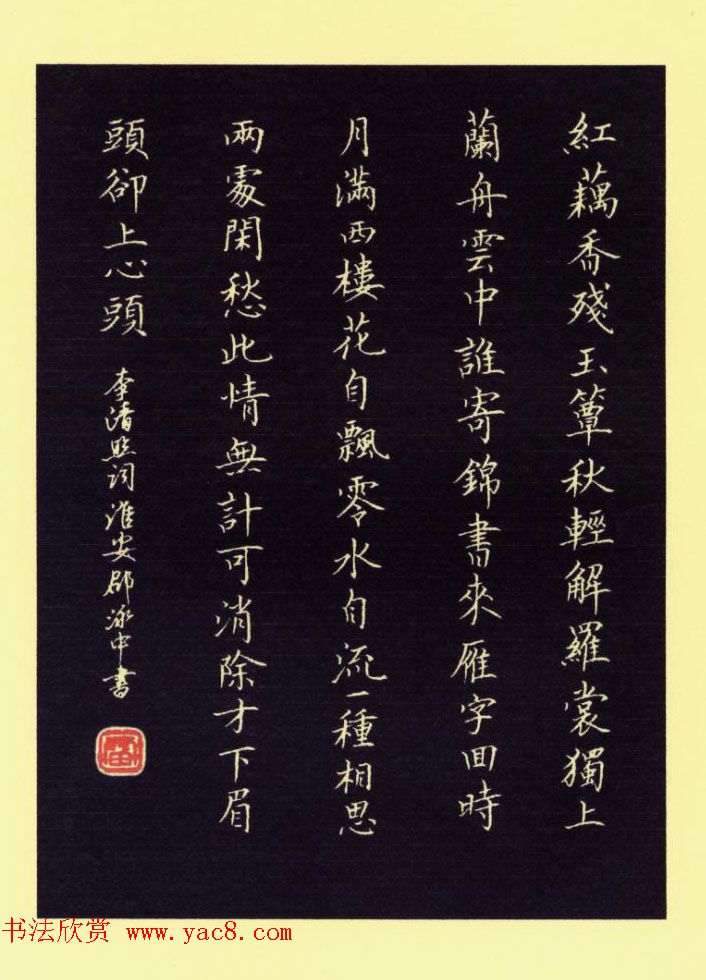 紅藕香殘玉簟秋輕解羅裳獨上
蘭舟雲中誰寄錦書來雁字回時
月滿西樓花自飄零水自流一種相思
兩處閑愁此情無計可消除才下眉
頭卻上心頭
李清照詞淮安邵泳中書
书法欣赏 www.yac8.com